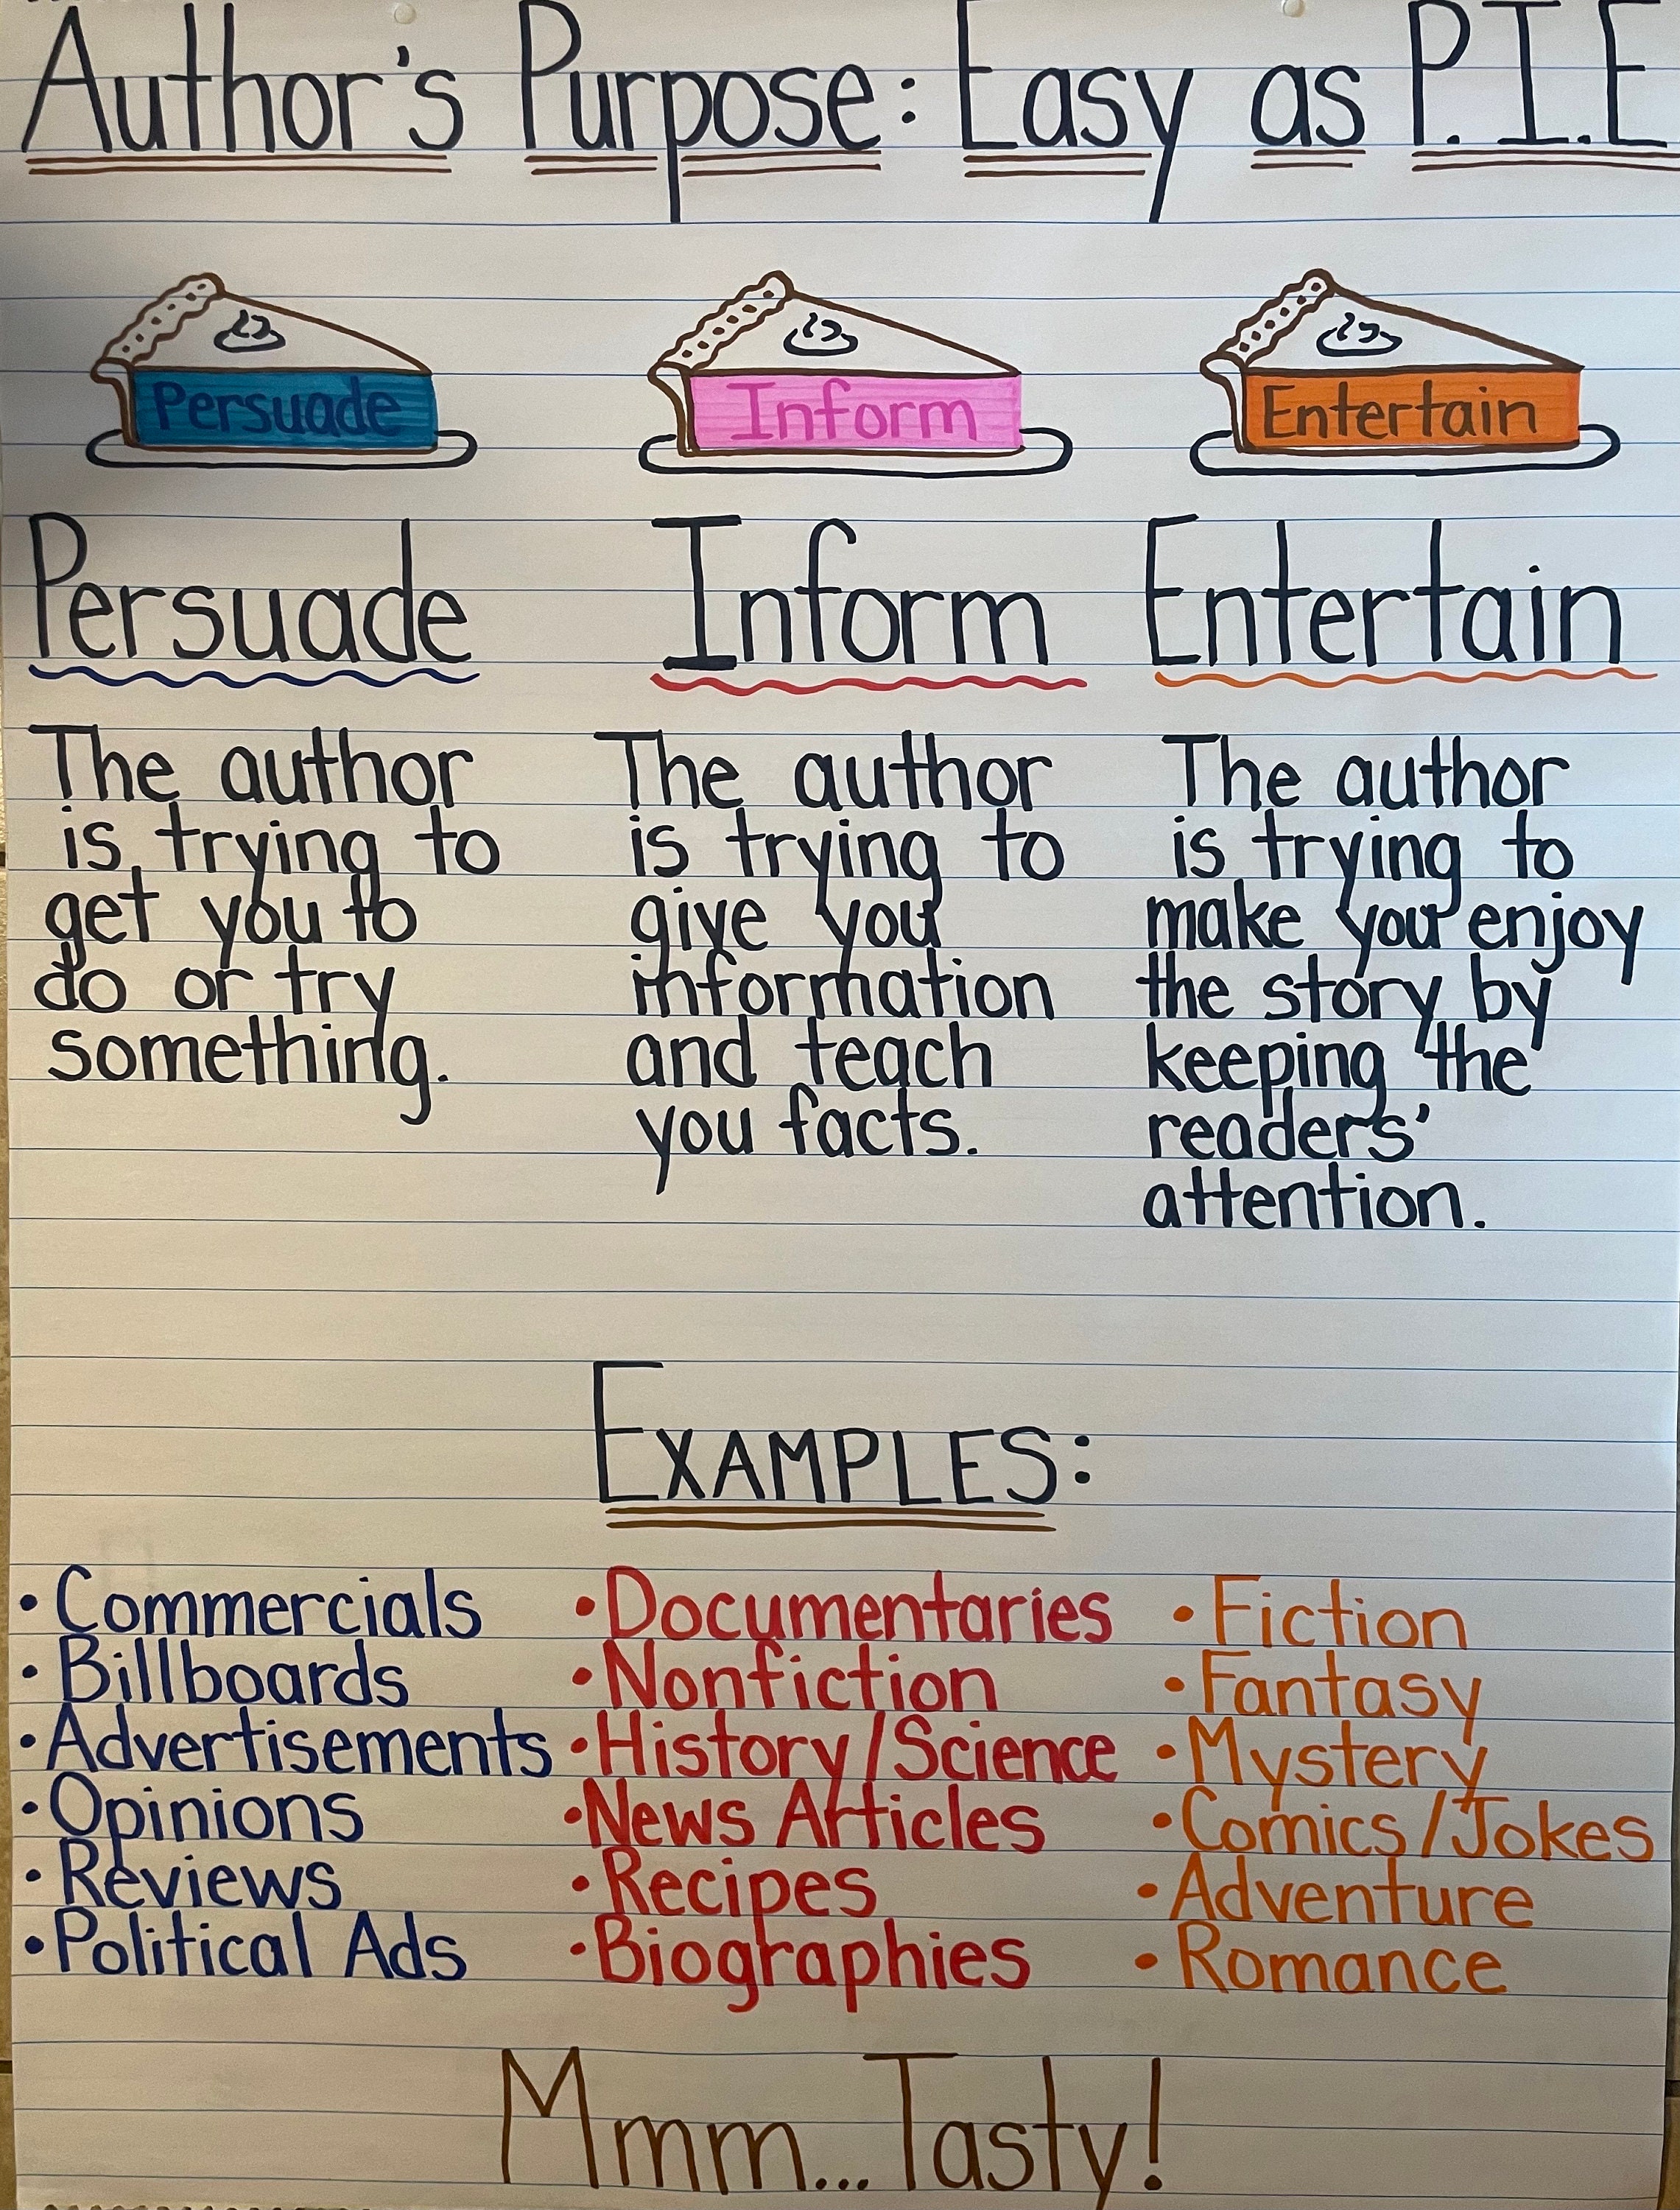 Author's Purpose: Easy as P.I.E
Persuade
Inform
Entertain
Persuade
Inform
Entertain
The author
is trying to
get you to
do or try
something.
The author
is trying to
give you
information
and teach
you facts.
The author
is trying to
make you enjoy
the story by
keeping the
readers'
attention.
EXAMPLES:
• Commercials
• Billboards
• Advertisements
• Opinions
• Reviews
• Political Ads
• Documentaries
• Nonfiction
• History/Science
• News Articles
• Recipes
• Biographies
• Fiction
• Fantasy
• Mystery
• Comics/Jokes
• Adventure
• Romance
Mmm...Tasty!